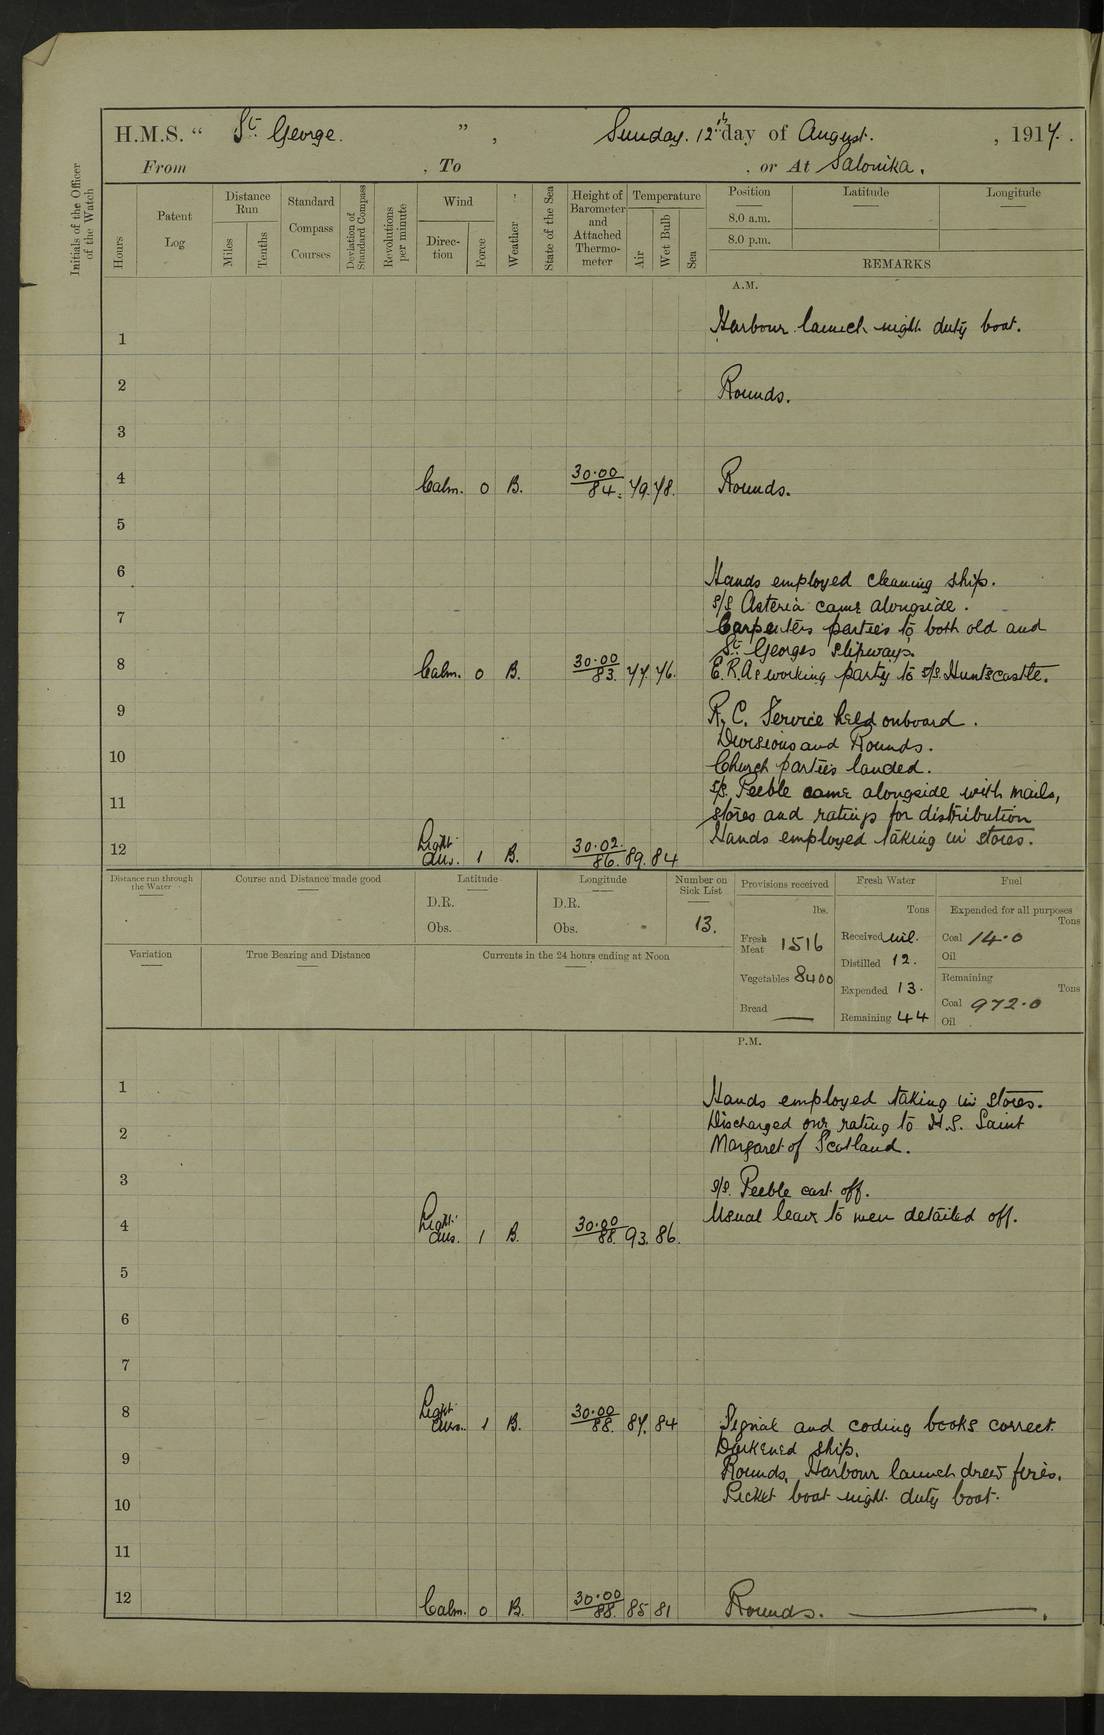 H.M.S. “ St. George. ” , Sunday. 12th day of August. , 1917.
From , To , or At Salonika.
Initials of the Officer of the Watch
Hours
Patent Log
Distance Run
Miles
Tenths
Standard Compass Courses
Deviation of Standard Compass
Revolutions per minute
Wind
Direction
Force
Weather
State of the Sea
Height of Barometer and Attached Thermometer
Temperature
Air
Wet Bulb
Sea
Position Latitude Longitude
8.0 a.m.
8.0 p.m.
REMARKS
A.M.
1 Harbour launch night duty boat.
2 Rounds.
3
4 Calm. 0 B. 30.00 / 84. 79. 78. Rounds.
5
6 Hands employed cleaning ship.
s/s Asteria came alongside.
7 Carpenters parties to both old and
St. Georges slipways.
8 Calm. 0 B. 30.00 / 83. 77. 76. E.R.As working party to s/s. Huntscastle.
9 R.C. Service held onboard.
Divisions and Rounds.
10 Church parties landed.
s/s. Peeble came alongside with mails,
11 stores and ratings for distribution
12 Light airs. 1 B. 30.02. / 86. 89. 84 Hands employed taking in stores.
Distance run through the Water
Course and Distance made good
Latitude
D.R.
Obs.
Longitude
D.R.
Obs.
Number on Sick List
13.
Provisions received
lbs.
Fresh Meat 1516
Vegetables 8400
Bread —
Fresh Water
Tons
Received nil.
Distilled 12.
Expended 13.
Remaining 44
Fuel
Expended for all purposes
Tons
Coal 14.0
Oil
Remaining
Tons
Coal 972.0
Oil
Variation
True Bearing and Distance
Currents in the 24 hours ending at Noon
P.M.
1 Hands employed taking in stores.
Discharged one rating to H.S. Saint
2 Margaret of Scotland.
3 s/s. Peeble cast off.
4 Light airs. 1 B. 30.00 / 88. 93. 86. Usual leave to men detailed off.
5
6
7
8 Light airs. 1 B. 30.00 / 88. 87. 84 Signal and coding books correct.
Darkened ship.
9 Rounds. Harbour launch drew fires.
10 Picket boat night duty boat.
11
12 Calm. 0 B. 30.00 / 88. 85 81 Rounds. —